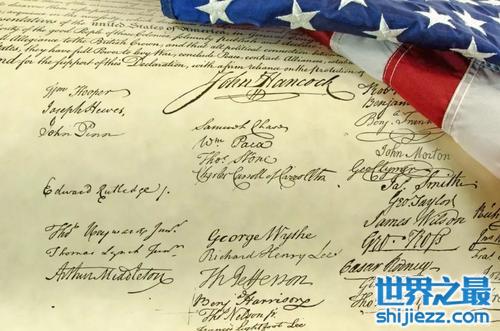 of the United States of America
by the Authority of the good People of these Colonies
to the British Crown, and that all political connection
States, they have full Power to levy War, conclude Peace, contract Alliances, establish
And for the support of this Declaration, with a firm reliance on the Protection of
John Hancock
Wm Hooper
Joseph Hewes,
John Penn
Edward Rutledge /.
Thos Heyward Junr.
Thomas Lynch Junr.
Arthur Middleton
Samuel Chase
Wm Paca
Thos Stone
Charles Carroll of Carrollton
George Wythe
Richard Henry Lee
Th Jefferson
Benj Harrison
Thos Nelson jr.
Francis Lightfoot Lee
Benjamin
Benj. Frank
John Morton
Geo Clymer
Jas. Smith
Geo. Taylor
James Wilson
Geo. Ross
Caesar Rodney
Geo
Tho
世界之最
shijiezz.com